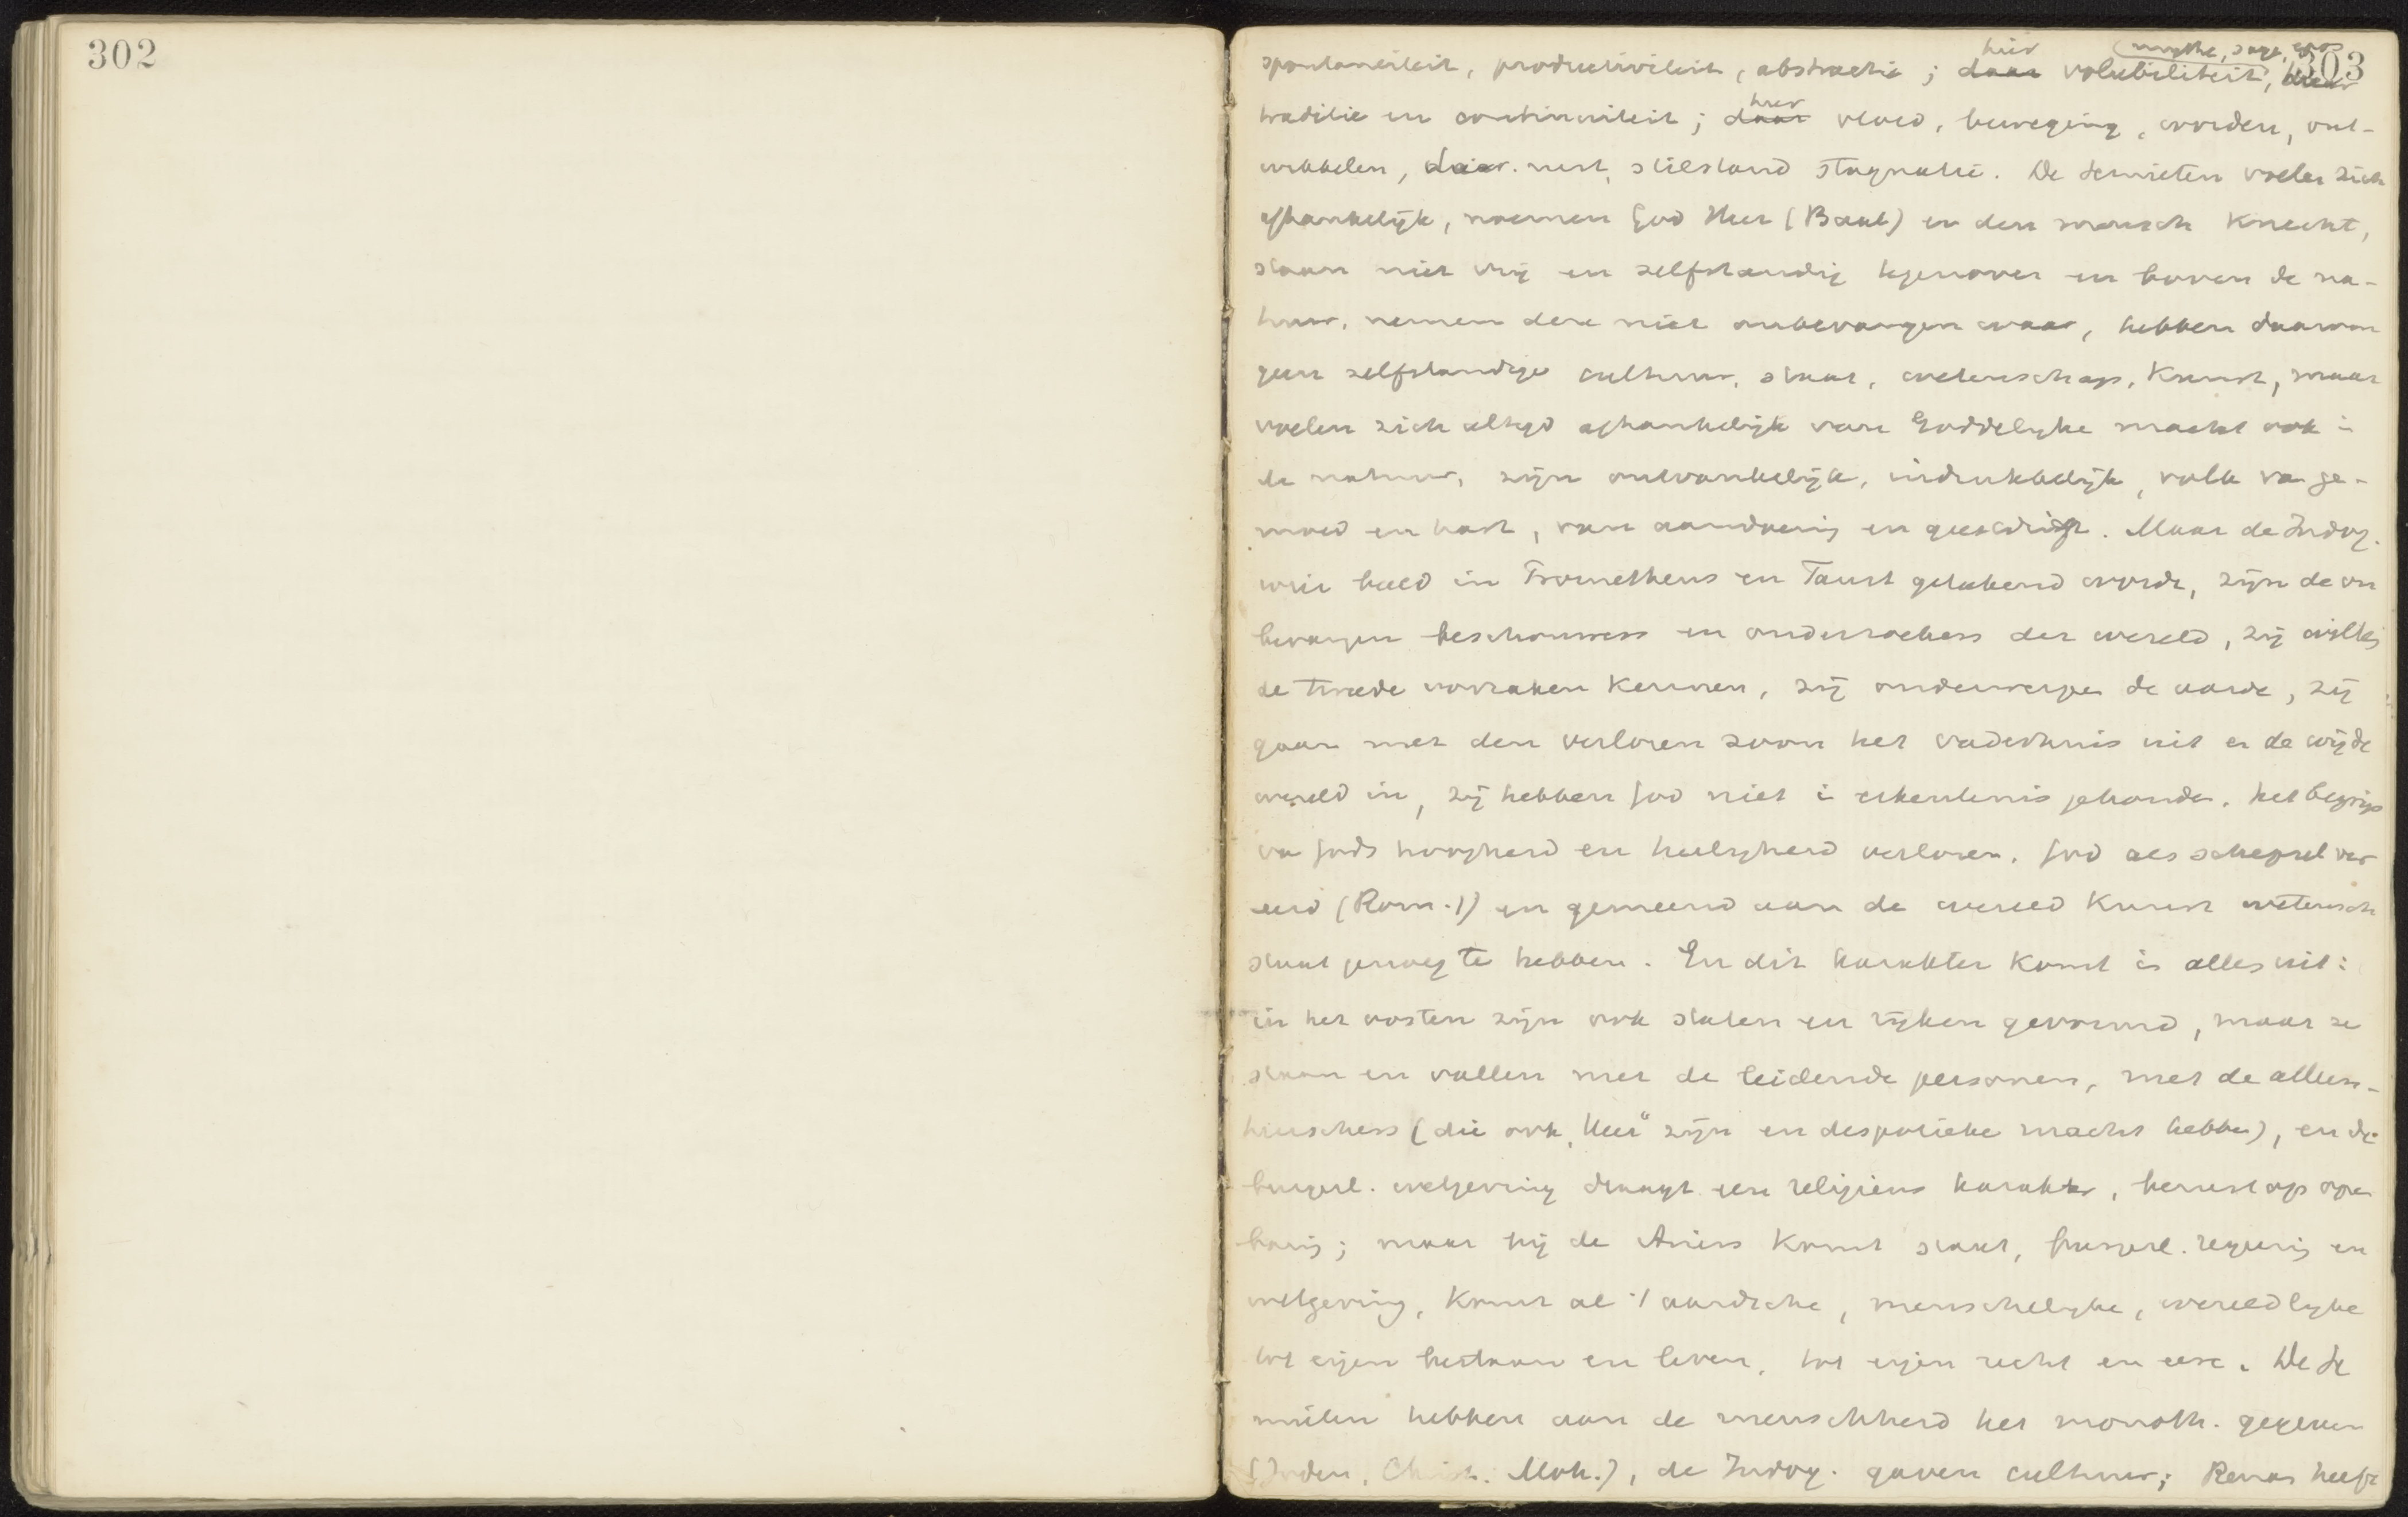 302
303
hier (mythe, sage, epos
spontaneiteit, productiviteit, abstractie; daar volubiliteit, daar
hier
traditie en continuiteit; daar vloed, beweging, worden, ont-
wikkelen, daar rust, stilstand stagnatie. De Semieten voelen zich
afhankelijk, noemen God Heer (Baal) en den mensch Knecht,
staan niet vrij en zelfstandig tegenover en boven de na-
tuur, nemen deze niet onbevangen waar, hebben daarom
geen zelfstandige cultuur, staat, wetenschap, Kunst, maar
voelen zich altijd afhankelijk van Goddelijke macht ook in
de natuur, zijn ontvankelijk, indrukkelijk, volk van ge-
moed en hart, van aandoening en geestdrift. Maar de Indog.
wier beeld in Prometheus en Faust getekend wordt, zijn de on
bevangen beschouwers en onderzoekers der wereld, zij willen
de tweede oorzaken Kennen, zij onderwerpen de aarde, zij
gaan met den verloren zoon het vaderhuis uit en de wijde
wereld in, zij hebben God niet in erkentenis gehouden, het begrip
van Gods hoogheid en heiligheid verloren, God als schepsel ver-
eerd (Rom. 1) en gemeend aan de wereld Kunst wetensch
staat genoeg te hebben. En dit karakter komt in alles uit:
in het oosten zijn ook staten en rijken gevormd, maar ze
staan en vallen met de leidende personen, met de alleen-
heerschers (die ook „Heer" zijn en despotieke macht hebben), en de
burgerl. wetgeving draagt een religieus karakter, berust op open
baring; maar bij de Ariers Komt staat, burgerl. regering en
wetgeving, Komt al 't aardsche, menschelijke, wereldlijke
tot eigen bestaan en leven, tot eigen recht en eere. De Se
mieten hebben aan de menschheid het monoth. gegeven
(Joden, Christ. Moh.), de Indog. gaven cultuur; Renan heeft